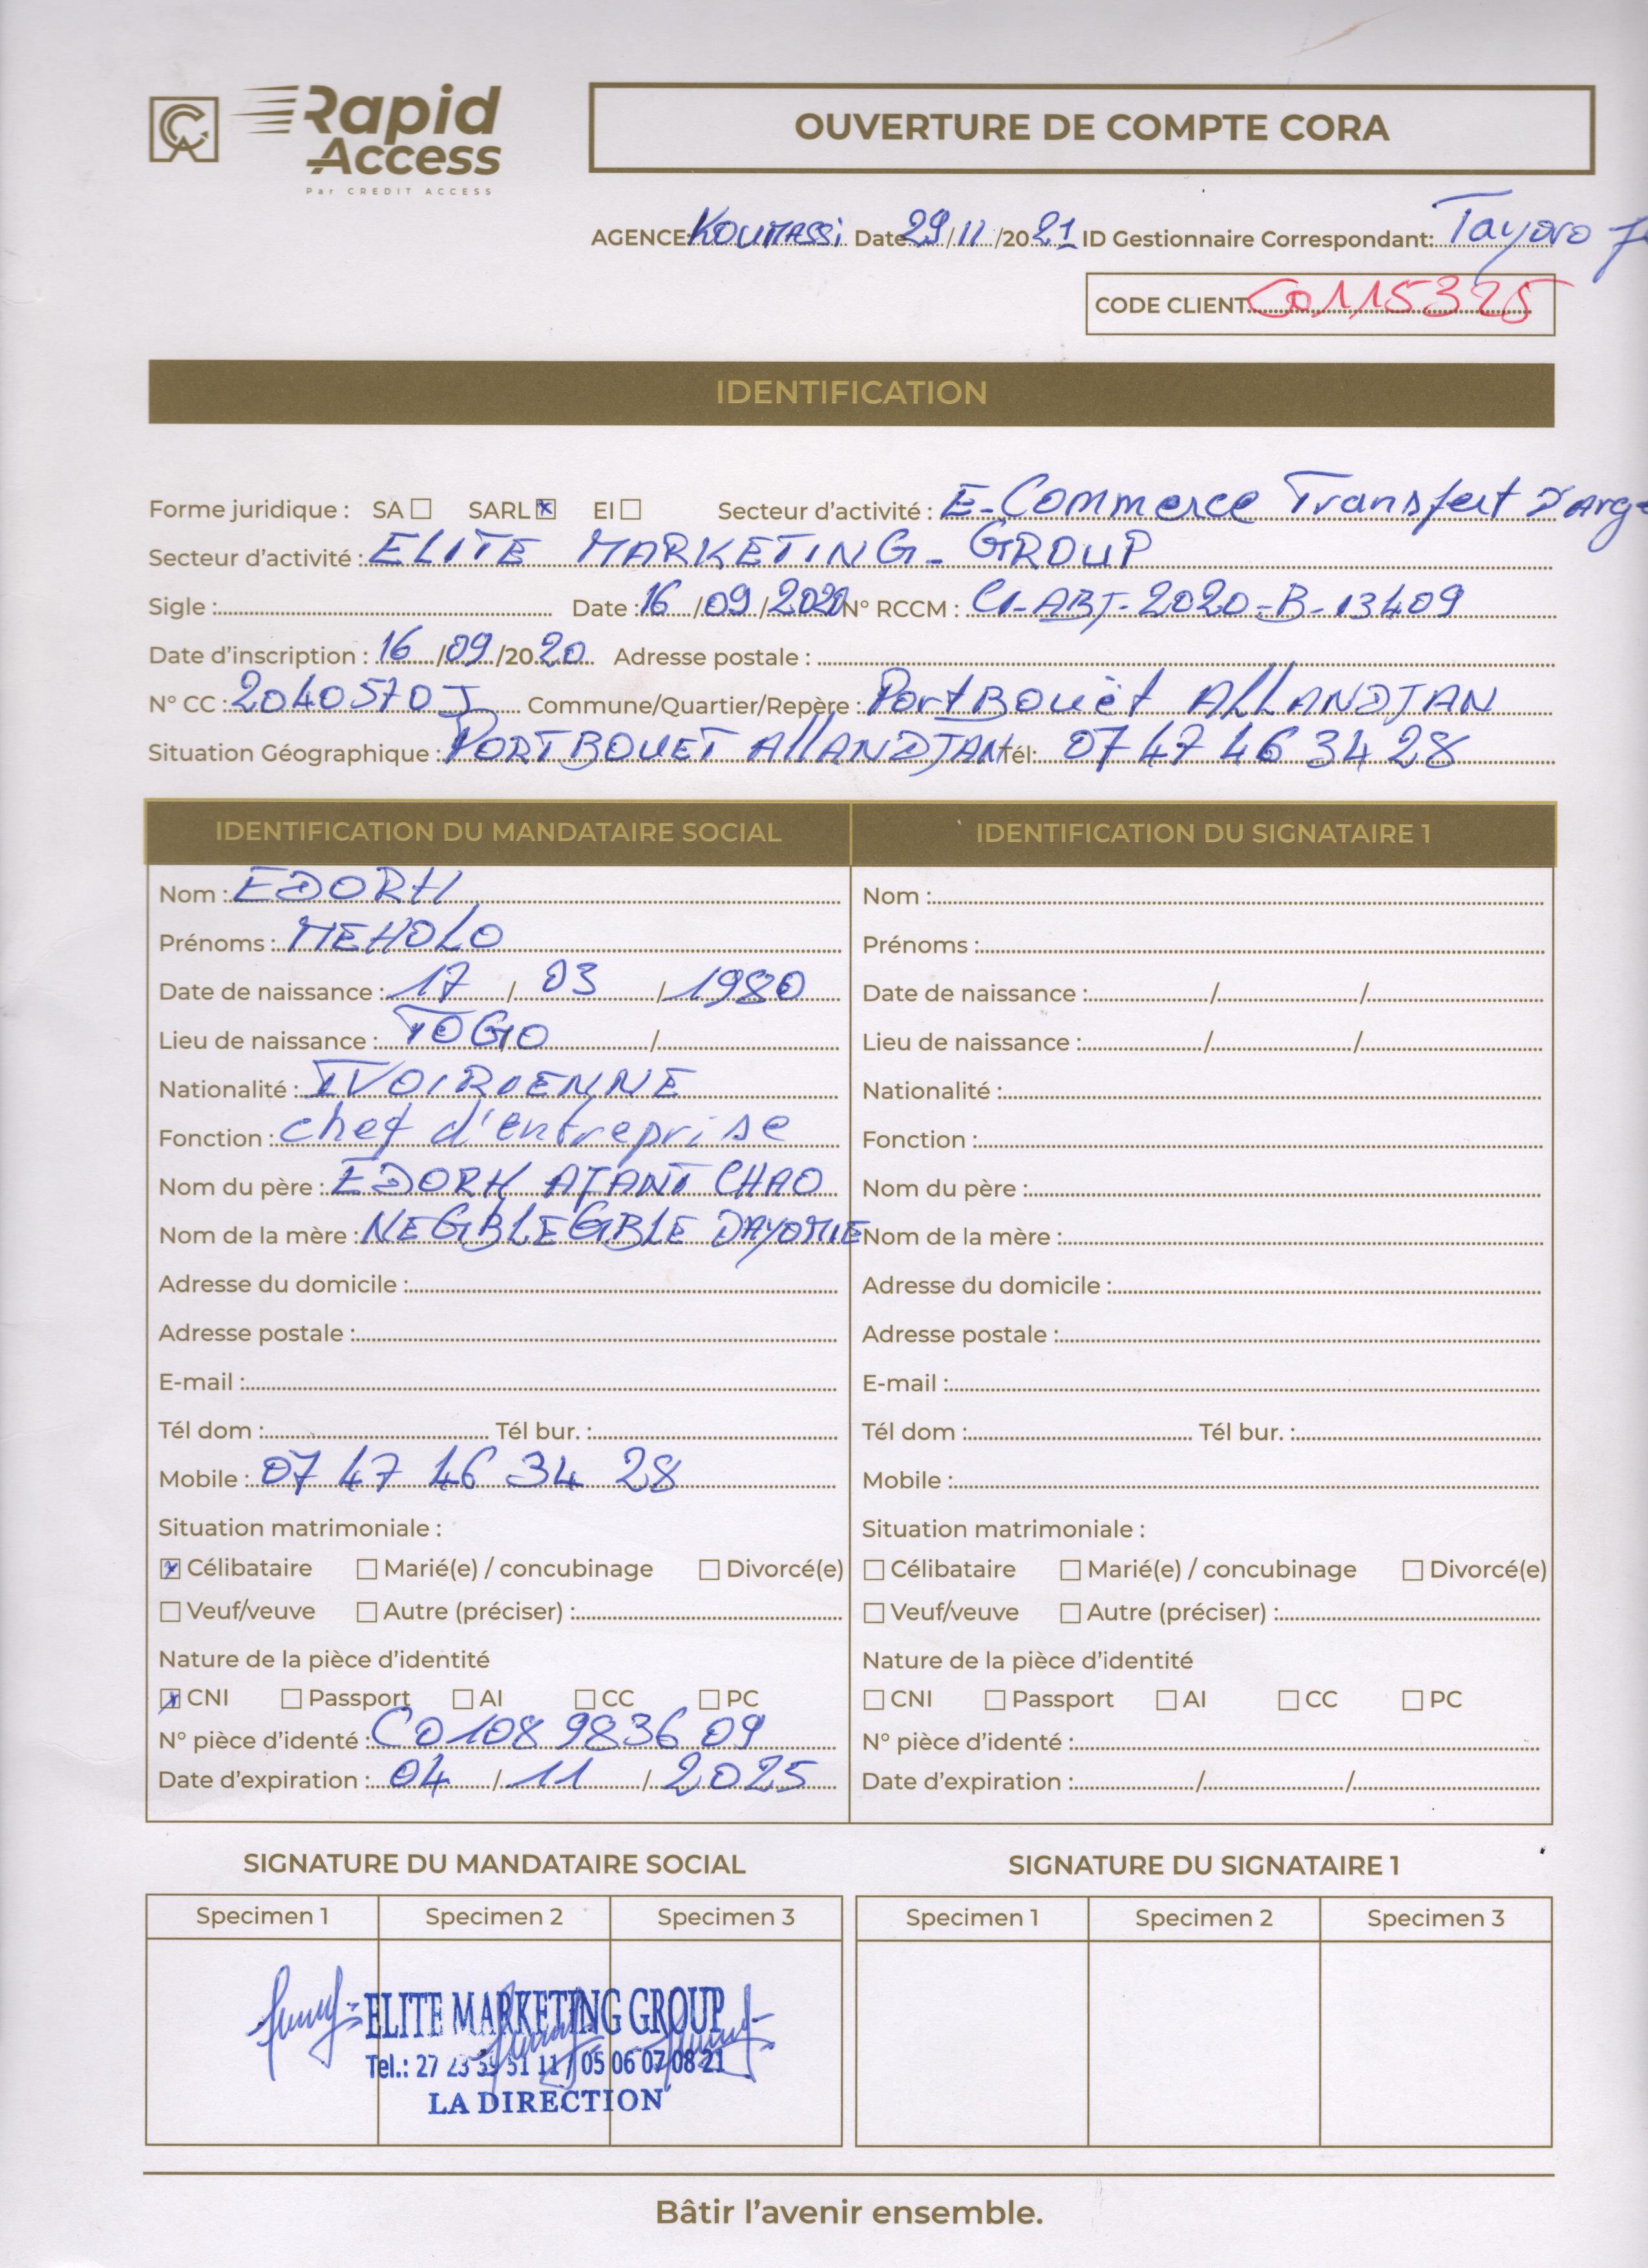 Rapid Access
Par CREDIT ACCESS
OUVERTURE DE COMPTE CORA
AGENCE: KOUMASSI Date 29/11/2021 ID Gestionnaire Correspondant: Tayoro
CODE CLIENT C0115325
IDENTIFICATION
Forme juridique : SA ☐ SARL ☒ EI ☐ Secteur d'activité : E-Commerce Transfert D'arge
Secteur d'activité : ELITE MARKETING-GROUP
Sigle : Date : 16/09/2020 N° RCCM : CI-ABJ-2020-B-13409
Date d'inscription : 16/09/2020 Adresse postale :
N° CC : 2040570J Commune/Quartier/Repère : PortBouët AllANDJAN
Situation Géographique : PORTBOUET AllANDJAN Tél: 07 47 46 34 28
IDENTIFICATION DU MANDATAIRE SOCIAL
Nom : EDORH
Prénoms : MEHOLO
Date de naissance : 17 / 03 / 1980
Lieu de naissance : TOGO /
Nationalité : IVOIRIENNE
Fonction : chef d'entreprise
Nom du père : EDORH AJANI CHAO
Nom de la mère : NEGBLEGBLE DAYOMIE
Adresse du domicile :
Adresse postale :
E-mail :
Tél dom : Tél bur. :
Mobile : 07 47 46 34 28
Situation matrimoniale :
☒ Célibataire ☐ Marié(e) / concubinage ☐ Divorcé(e)
☐ Veuf/veuve ☐ Autre (préciser) :
Nature de la pièce d'identité
☒ CNI ☐ Passport ☐ AI ☐ CC ☐ PC
N° pièce d'identé : C0108 9836 09
Date d'expiration : 04 / 11 / 2025
IDENTIFICATION DU SIGNATAIRE 1
Nom :
Prénoms :
Date de naissance : / /
Lieu de naissance : / /
Nationalité :
Fonction :
Nom du père :
Nom de la mère :
Adresse du domicile :
Adresse postale :
E-mail :
Tél dom : Tél bur. :
Mobile :
Situation matrimoniale :
☐ Célibataire ☐ Marié(e) / concubinage ☐ Divorcé(e)
☐ Veuf/veuve ☐ Autre (préciser) :
Nature de la pièce d'identité
☐ CNI ☐ Passport ☐ AI ☐ CC ☐ PC
N° pièce d'identé :
Date d'expiration : / /
SIGNATURE DU MANDATAIRE SOCIAL
Specimen 1 Specimen 2 Specimen 3
ELITE MARKETING GROUP
Tel.: 27 23 51 11 / 05 06 07 08 21
LA DIRECTION
SIGNATURE DU SIGNATAIRE 1
Specimen 1 Specimen 2 Specimen 3
Bâtir l'avenir ensemble.